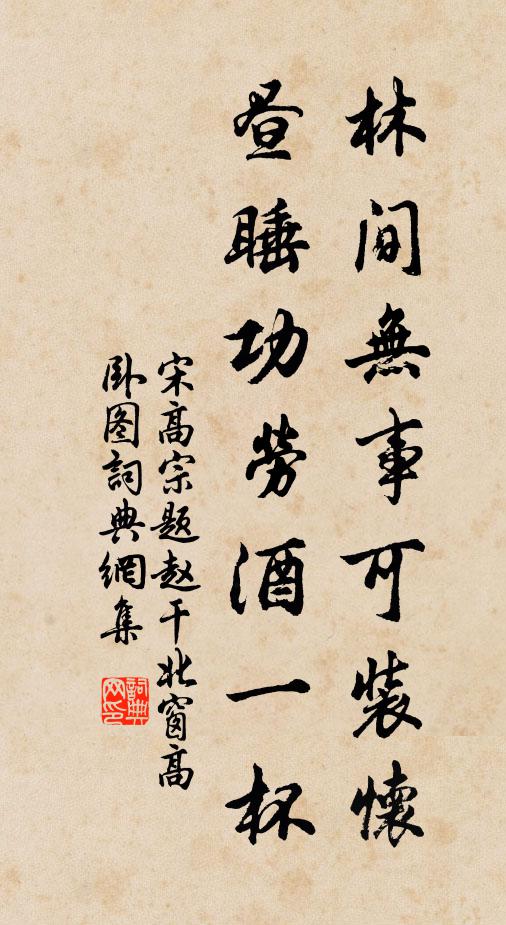 林間無事可裝懷
昼睡功勞酒一杯
宋高宗题赵干北窗高
卧图詞典網集
詞典网印